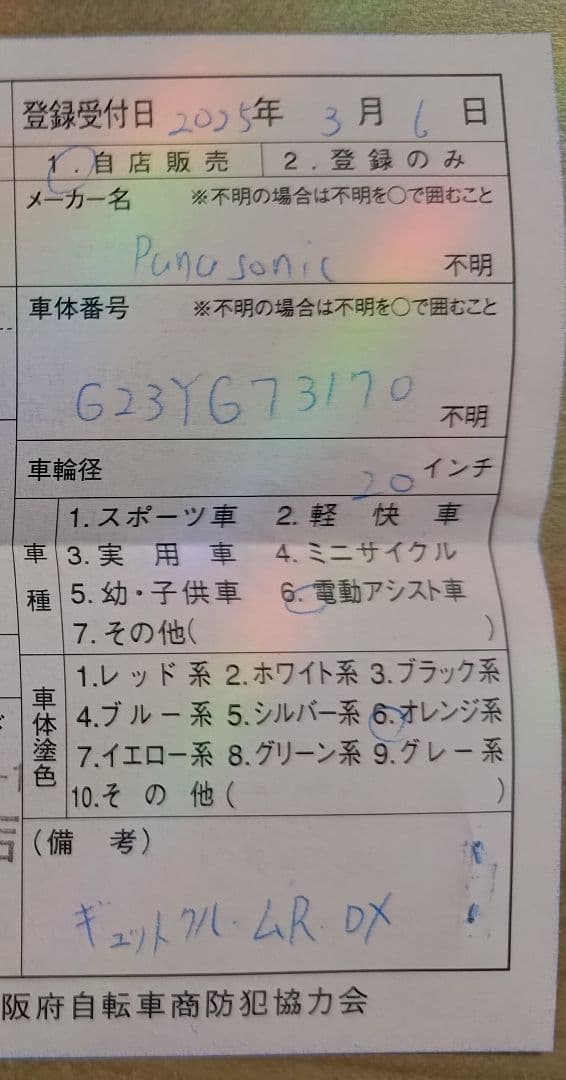 登録受付日 2025年 3月 6日
1.自店販売 2.登録のみ
メーカー名 ※不明の場合は不明を〇で囲むこと
Panasonic 不明
車体番号 ※不明の場合は不明を〇で囲むこと
G23YG73170 不明
車輪径 20インチ
車種
1.スポーツ車 2.軽快車
3.実用車 4.ミニサイクル
5.幼・子供車 6.電動アシスト車
7.その他( )
車体塗色
1.レッド系 2.ホワイト系 3.ブラック系
4.ブルー系 5.シルバー系 6.オレンジ系
7.イエロー系 8.グリーン系 9.グレー系
10.その他( )
(備考)
ギュットクル・ムR.DX
阪府自転車商防犯協力会